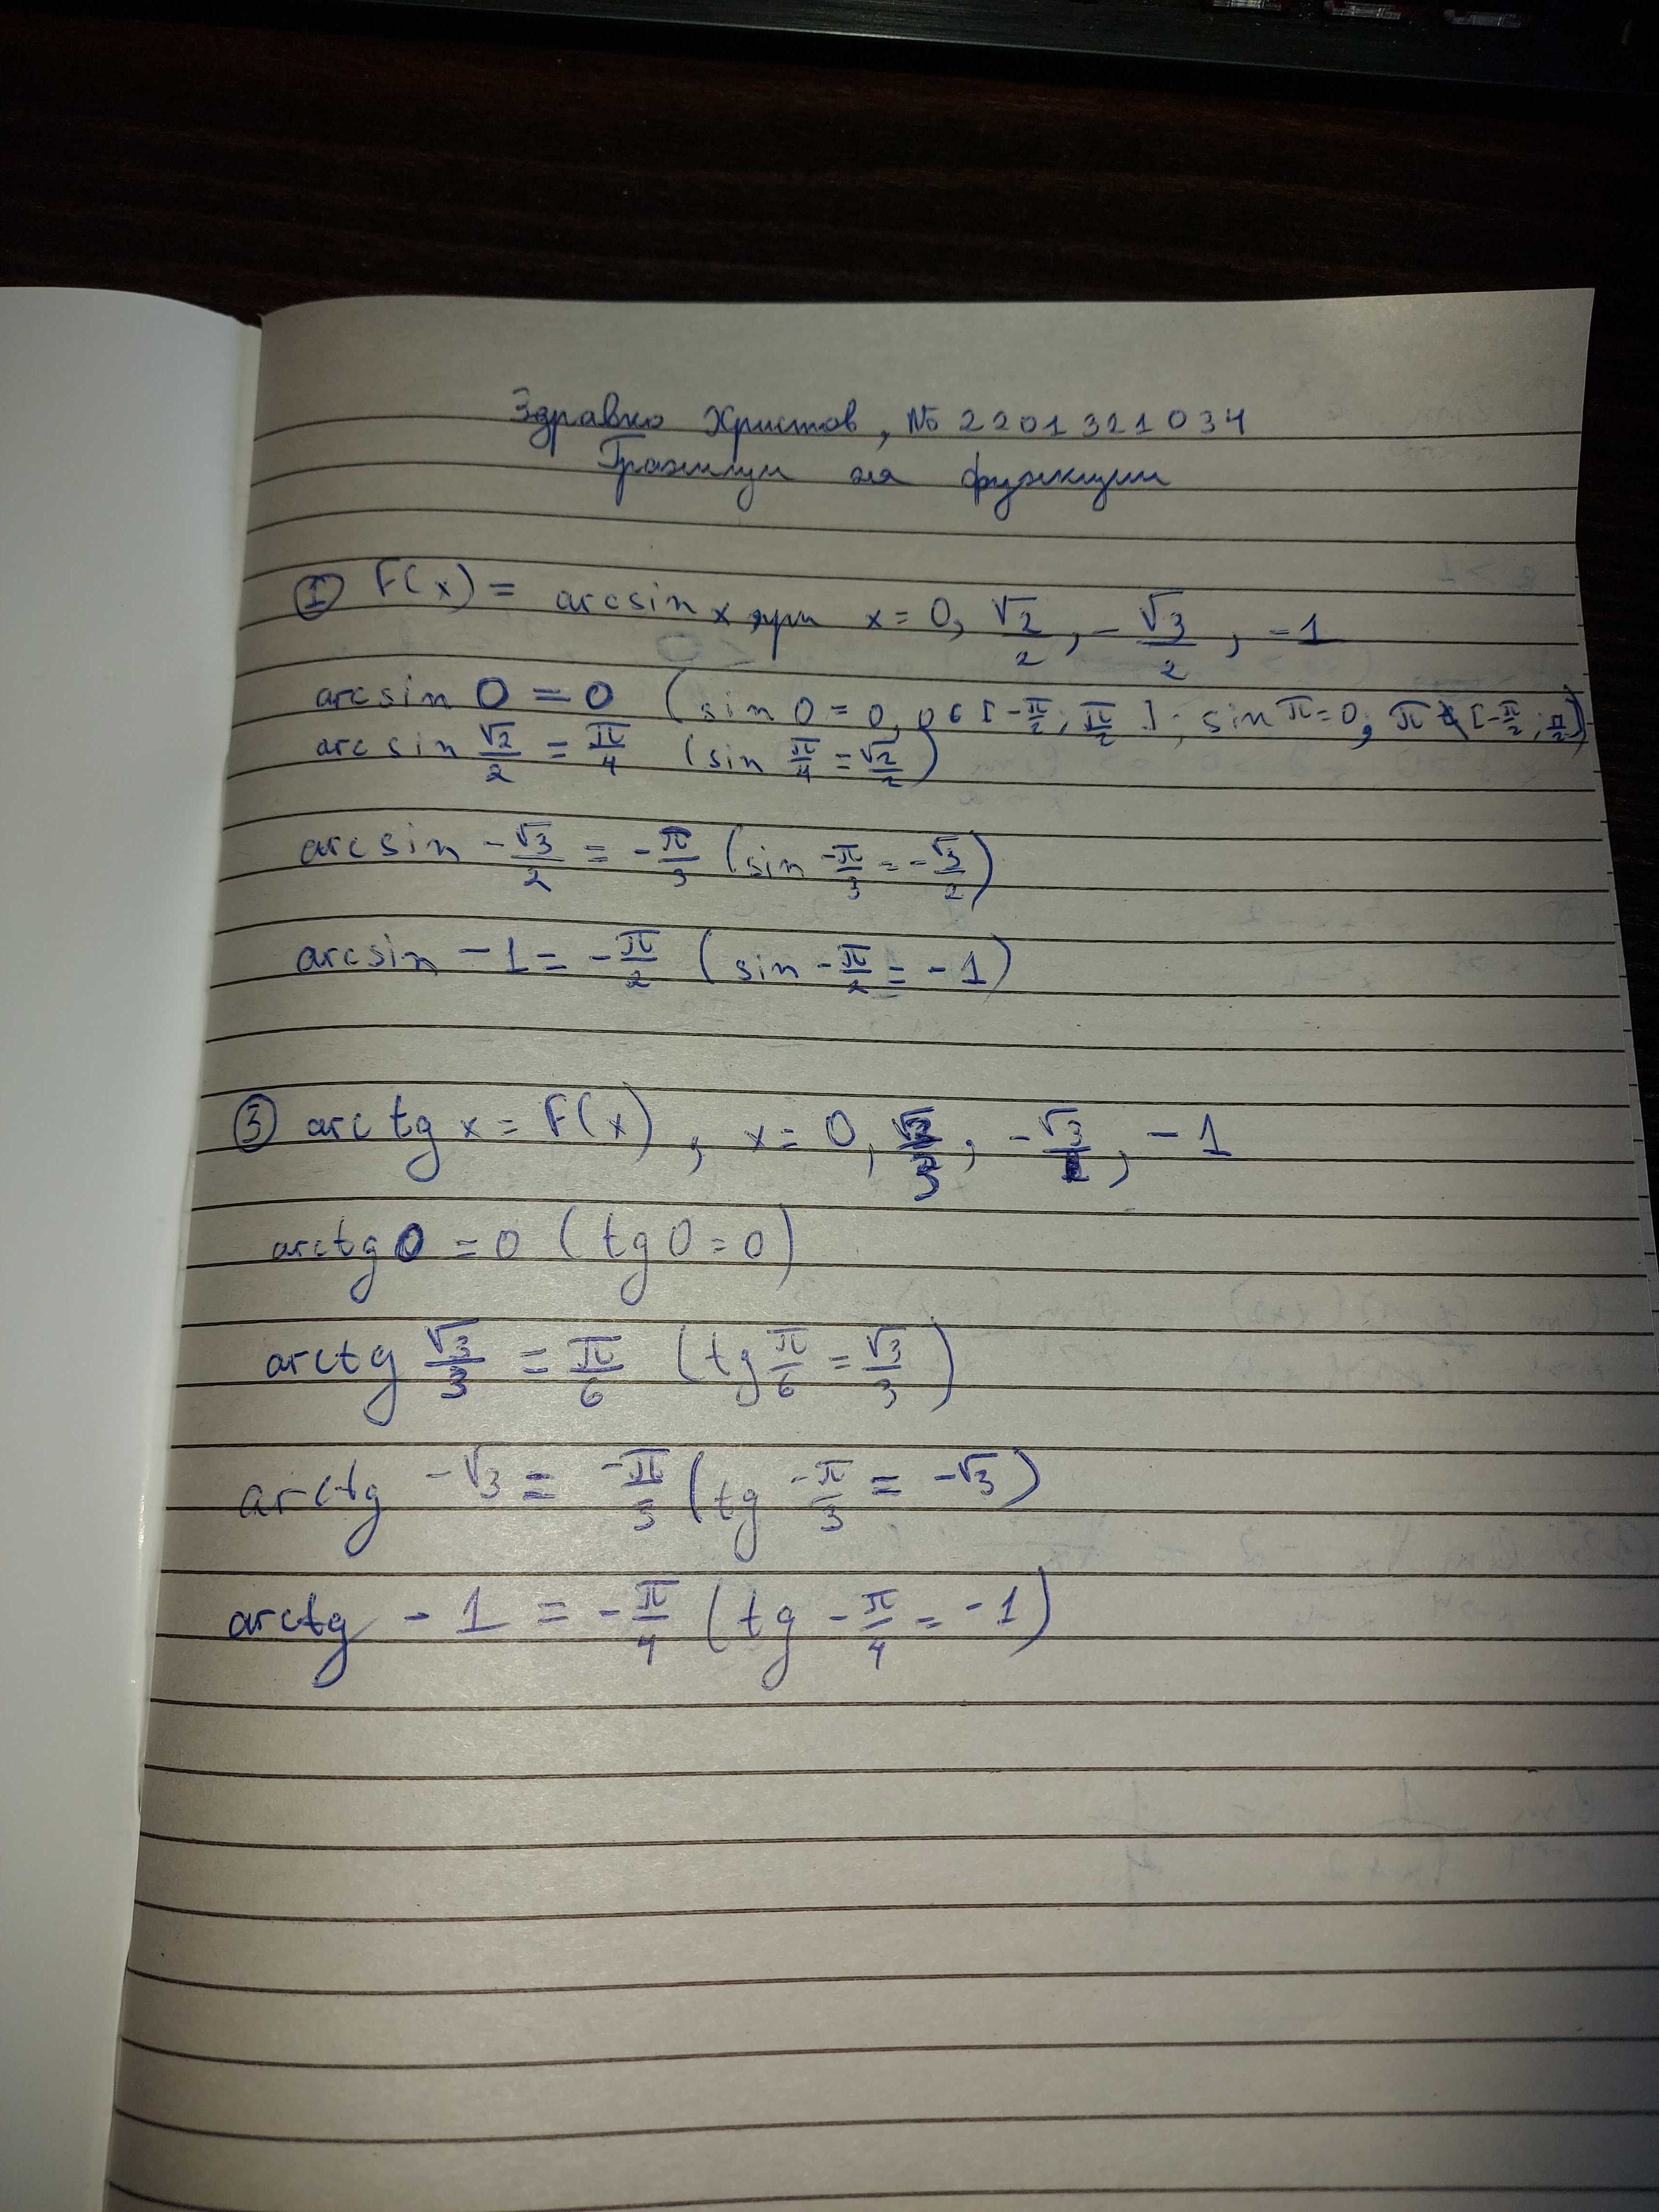 Здравко Христов, № 2201321034
Граници на функции
① F(x) = arcsin x, при x = 0, √2/2, -√3/2, -1
arcsin 0 = 0 (sin 0 = 0, 0 ∈ [-π/2; π/2]; sin π = 0, π ∉ [-π/2; π/2])
arcsin √2/2 = π/4 (sin π/4 = √2/2)
arcsin -√3/2 = -π/3 (sin -π/3 = -√3/2)
arcsin -1 = -π/2 (sin -π/2 = -1)
③ arctg x = F(x), x = 0, √3/3, -√3, -1
arctg 0 = 0 (tg 0 = 0)
arctg √3/3 = π/6 (tg π/6 = √3/3)
arctg -√3 = -π/3 (tg -π/3 = -√3)
arctg -1 = -π/4 (tg -π/4 = -1)